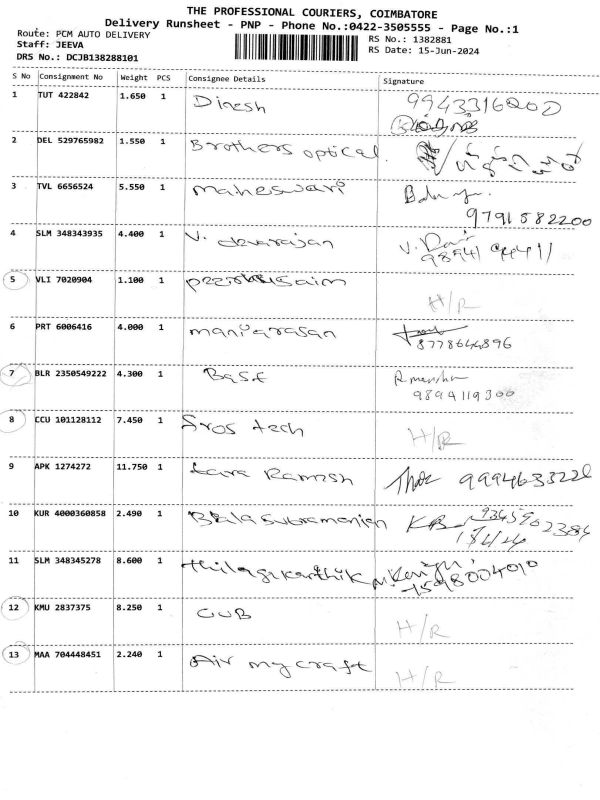 THE PROFESSIONAL COURIERS, COIMBATORE
Delivery Runsheet - PNP - Phone No.:0422-3505555 - Page No.:1
Route: PCM AUTO DELIVERY
RS No.: 1382881
Staff: JEEVA
RS Date: 15-Jun-2024
DRS No.: DCJB138288101
S No Consignment No Weight PCS Consignee Details Signature
1 TUT 422842 1.650 1 Dinesh
2 DEL 529765982 1.550 1 Brothers optical.
3 TVL 6656524 5.550 1 maheswari
9791582200
4 SLM 348343935 4.400 1 V. devarajan
5 VLI 7020904 1.100 1 H/R
6 PRT 6006416 4.000 1 maniyarasan
8778644896
7 BLR 2350549222 4.300 1 Basf
9894119300
8 CCU 101128112 7.450 1 Sros tech H/R
9 APK 1274272 11.750 1 Ramesh
10 KUR 4000360858 2.490 1 Balasubramanian KB
11 SLM 348345278 8.600 1 thilagakarthik
12 KMU 2837375 8.250 1 CUB H/R
13 MAA 704448451 2.240 1 Air my craft H/R